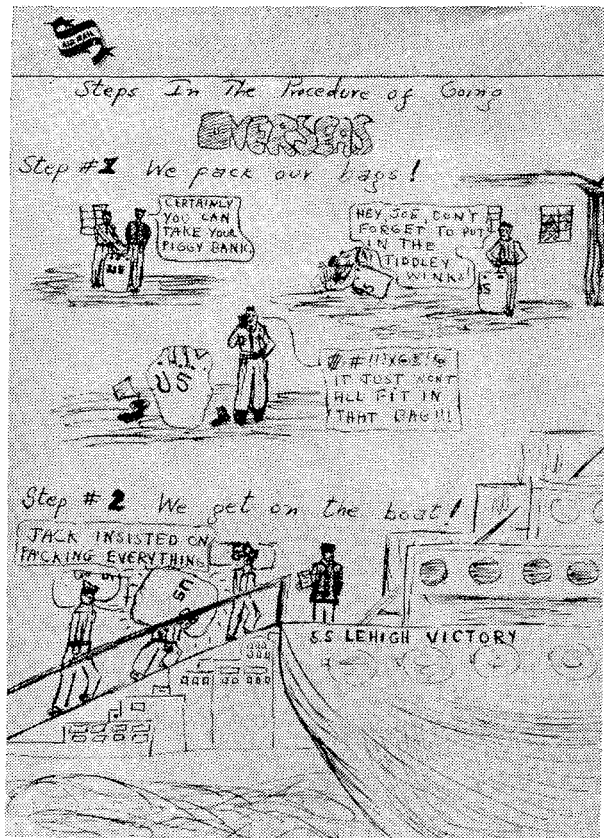 AIR MAIL
Steps In The Procedure of Going
OVERSEAS
Step #1 We pack our bags!
CERTAINLY
YOU CAN
TAKE YOUR
PIGGY BANK
HEY, JOE, DON'T
FORGET TO PUT
IN THE
TIDDLEY
WINKS!
US
US
U.S.
IT JUST WON'T
ALL FIT IN
THAT BAG!!!
Step #2 We get on the boat!
JACK INSISTED ON
PACKING EVERYTHING
US
SS LEHIGH VICTORY